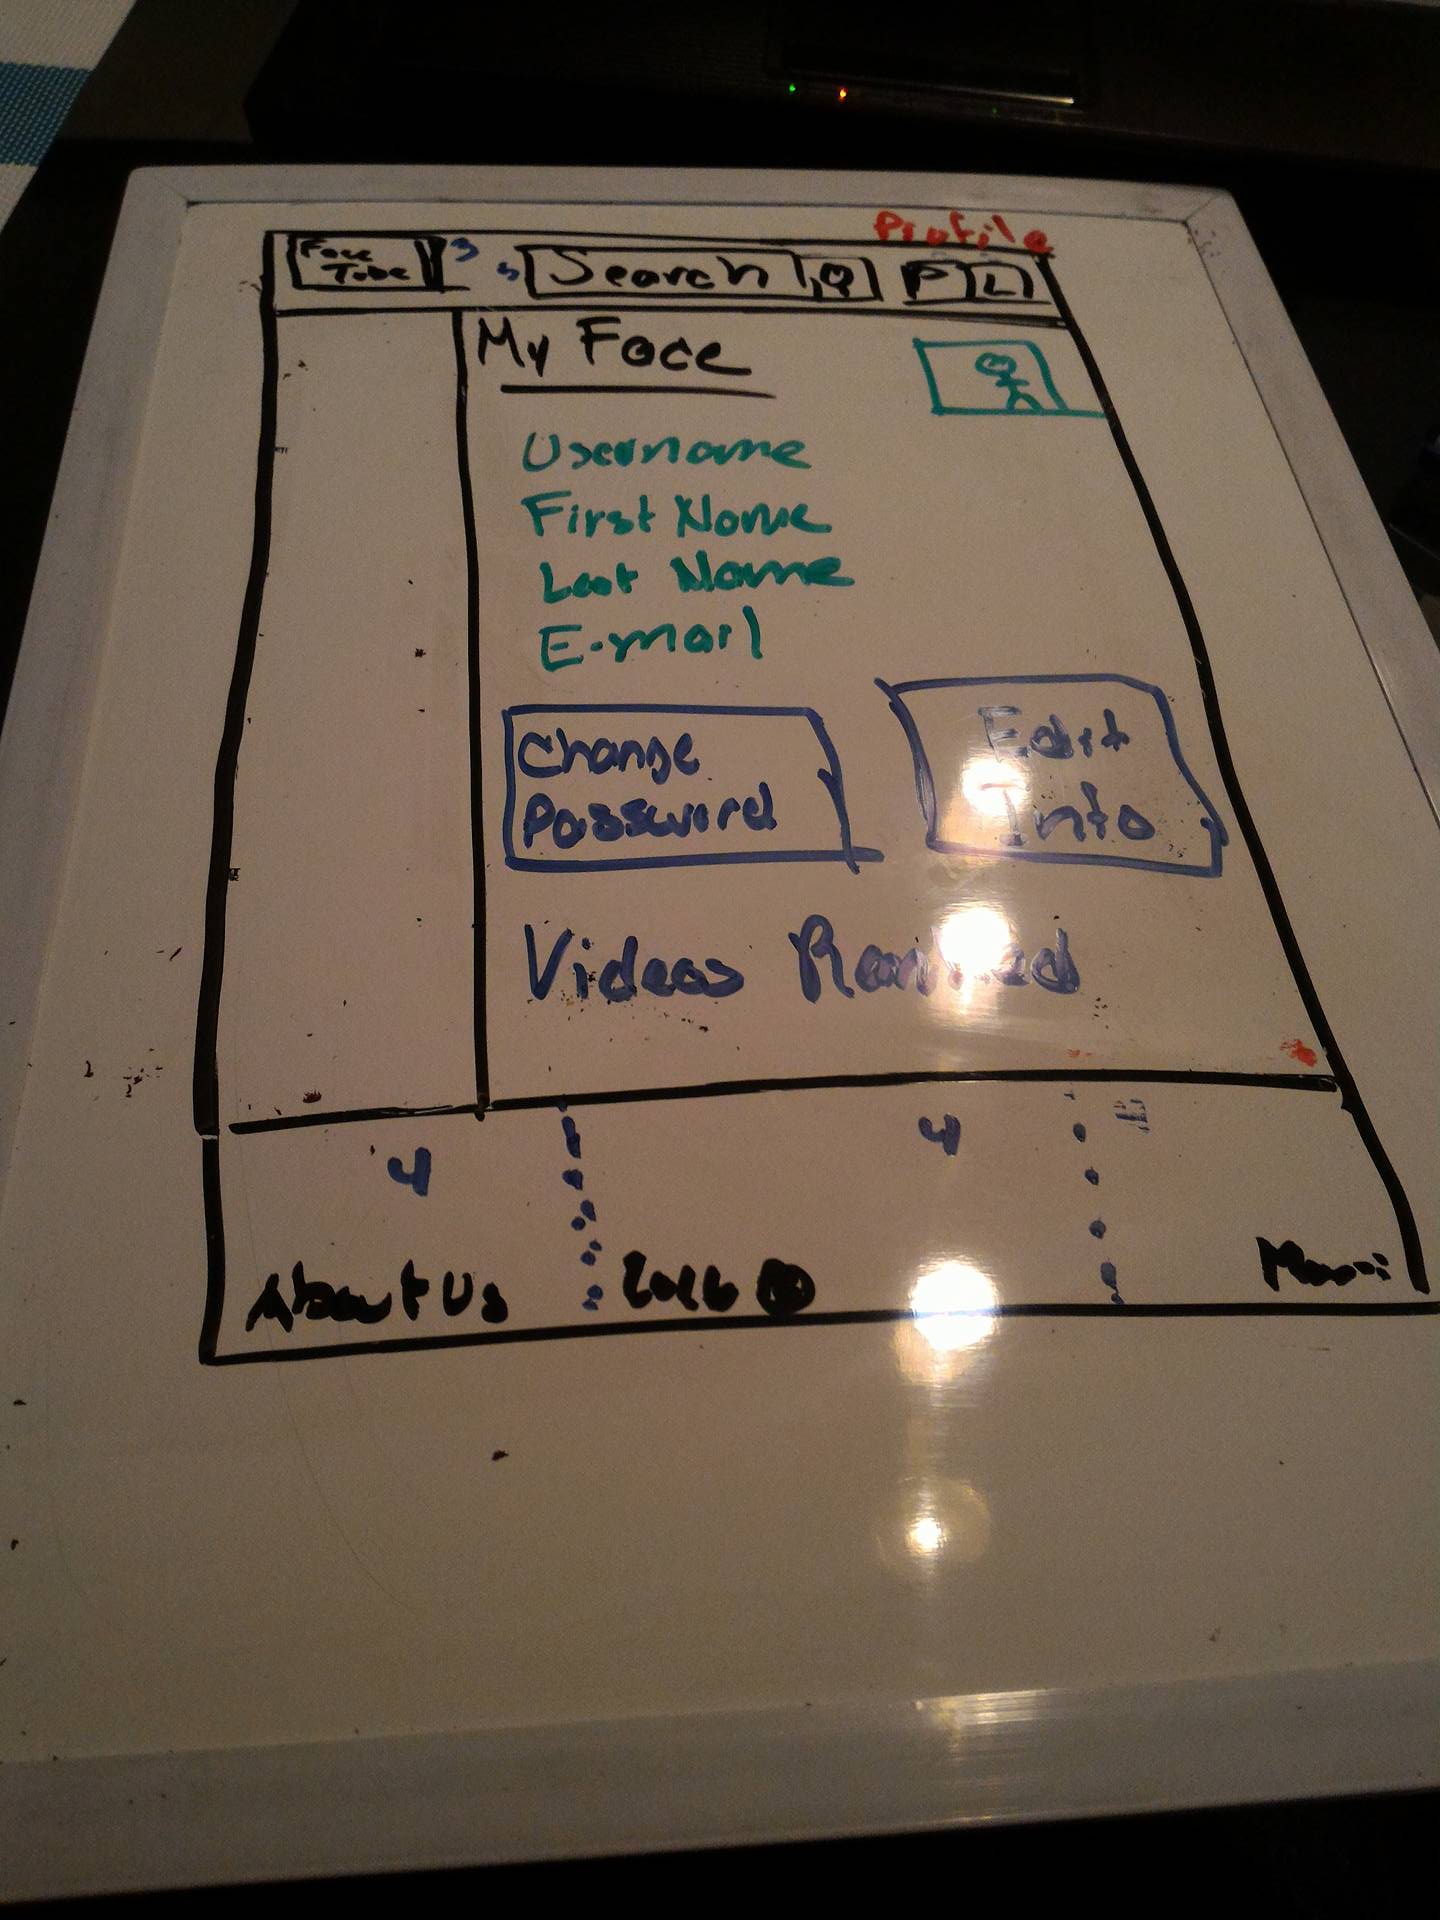 Profile
Face
Tube
3
5
Search
P
L
My Face
Username
First Name
Last Name
E-mail
Change
Password
Edit
Info
Videos Ranked
4
4
About Us
2016